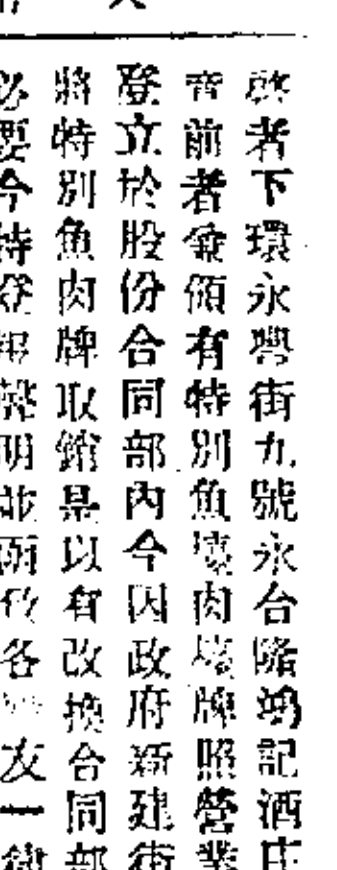 啓者下環永興街九號永台隆鴻記酒庄
前者兼領有特別魚壇肉壇牌照營業
登立於股份合同部內今因政府新建街
將特別魚肉牌取銷是以有改換合同部
必要今特登報聲明並兩各友一律